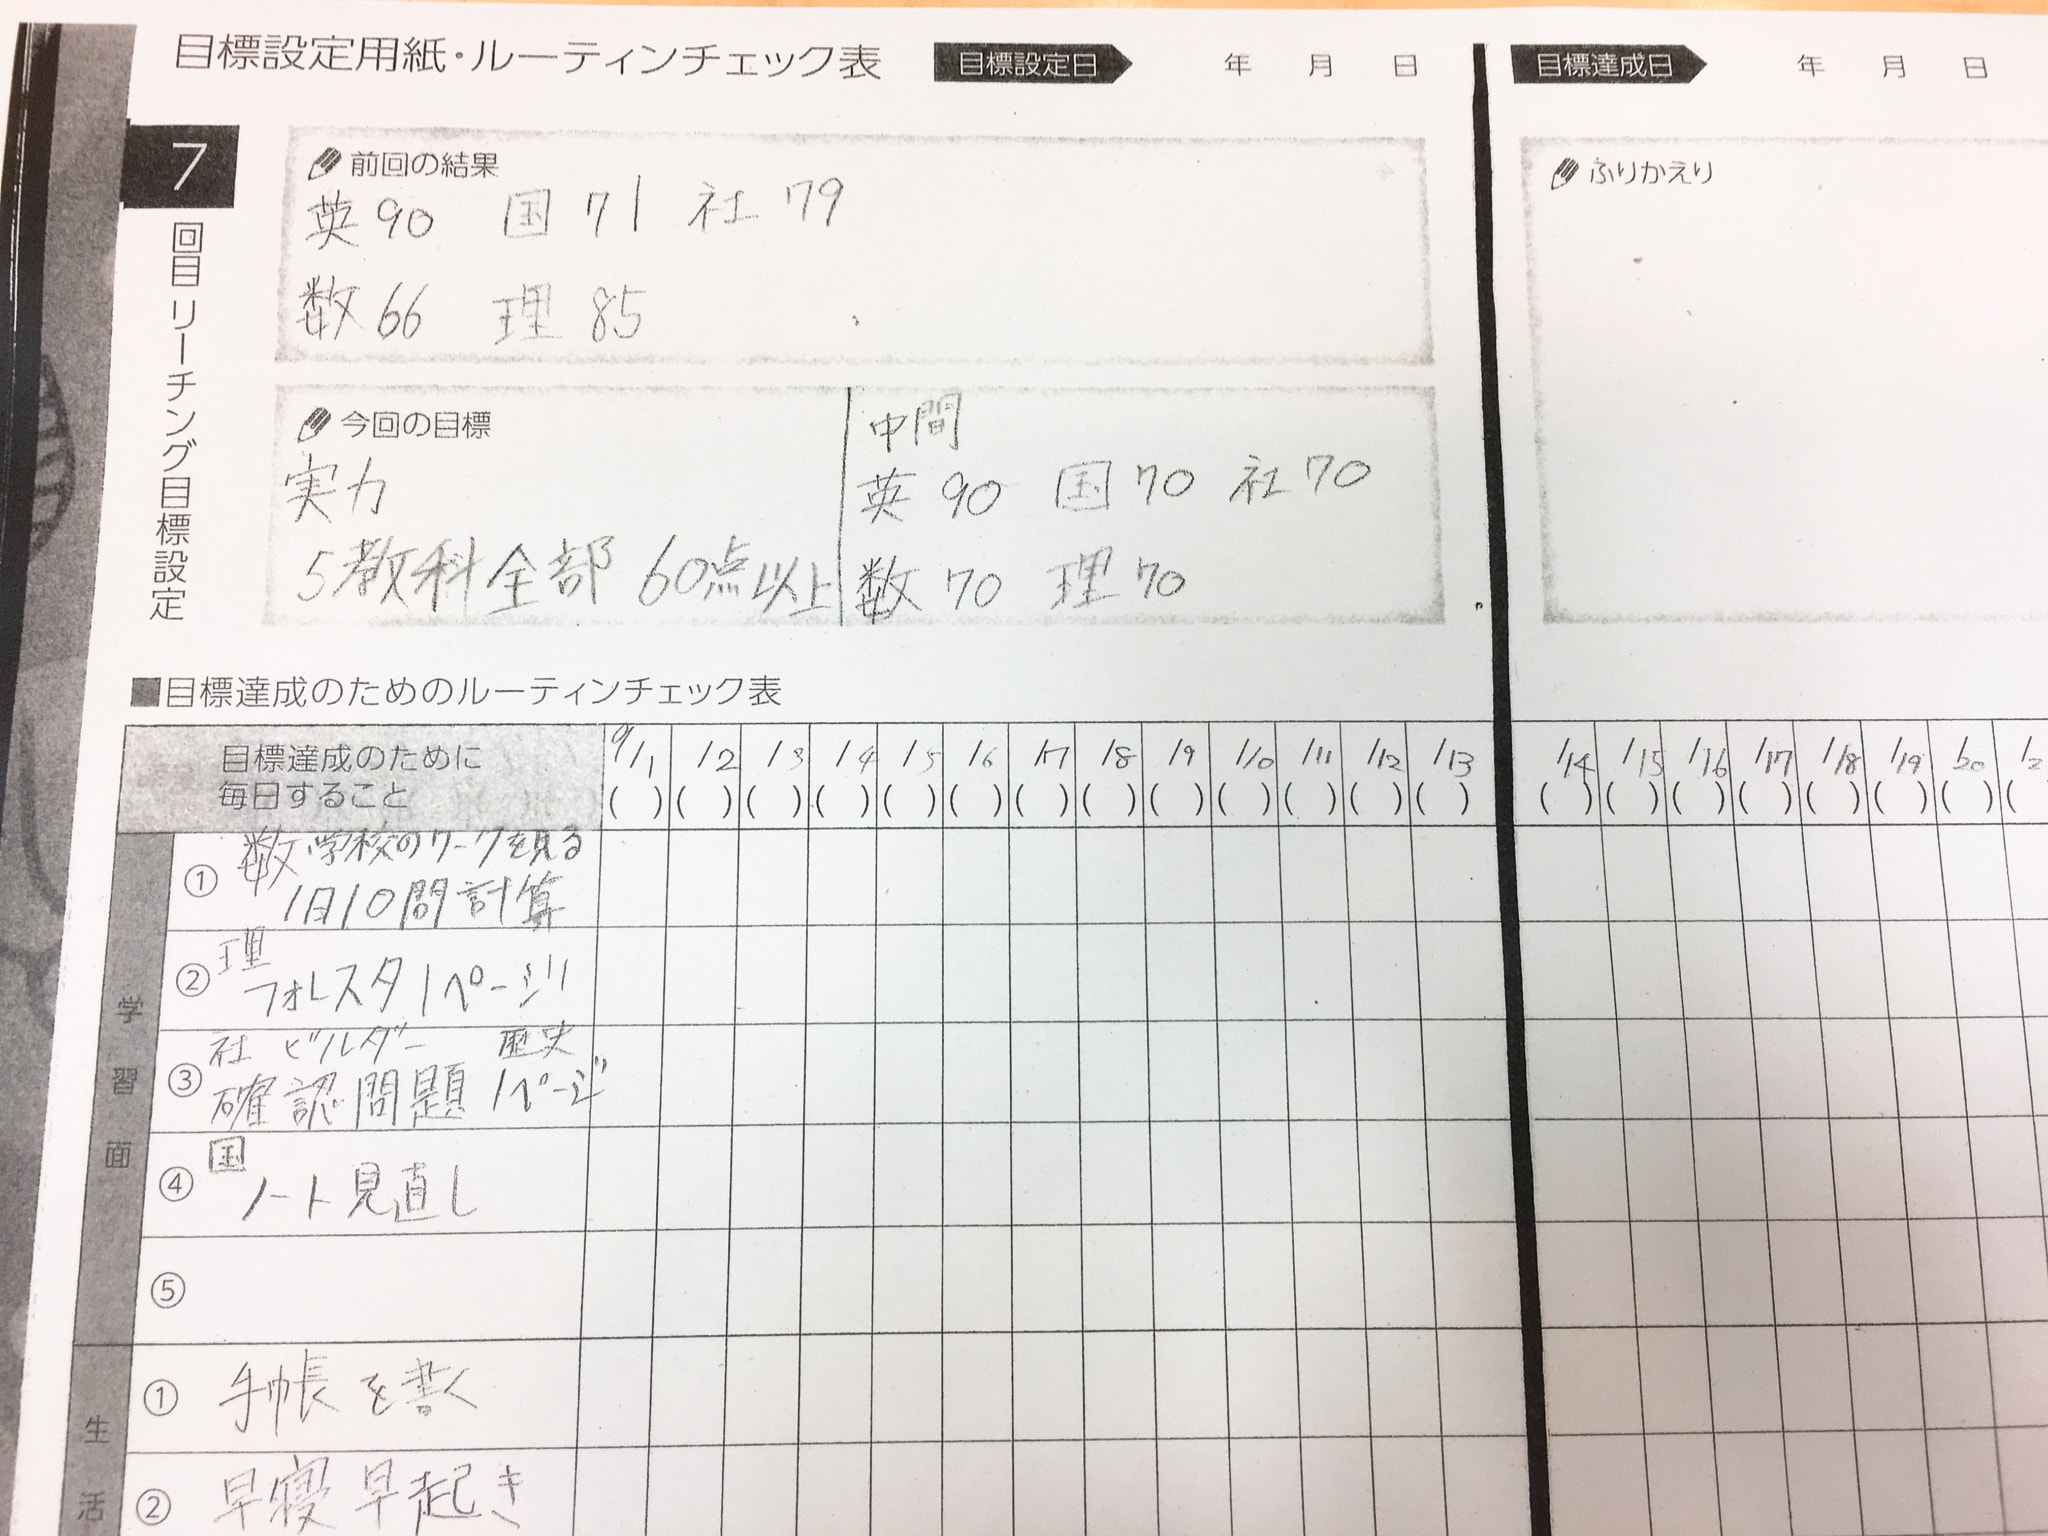 目標設定用紙・ルーティンチェック表
目標設定日 年 月 日
目標達成日 年 月 日
7
回目 リーチング目標設定
前回の結果
英 90 国 71 社 79
数 66 理 85
ふりかえり
今回の目標
実力
5教科全部 60点以上
中間
英 90 国 70 社 70
数 70 理 70
■目標達成のためのルーティンチェック表
目標達成のために
毎日すること
9/1 /2 /3 /4 /5 /6 /7 /8 /9 /10 /11 /12 /13 /14 /15 /16 /17 /18 /19 /20
( ) ( ) ( ) ( ) ( ) ( ) ( ) ( ) ( ) ( ) ( ) ( ) ( ) ( ) ( ) ( ) ( ) ( ) ( ) ( ) (
学習面
① 数 学校のワークを見る
1日10問計算
② 理
フォレスタ1ページ
③ 社 ビルダー 歴史
確認問題 1ページ
④ 国
ノート見直し
⑤
生活
① 手帳を書く
② 早寝早起き